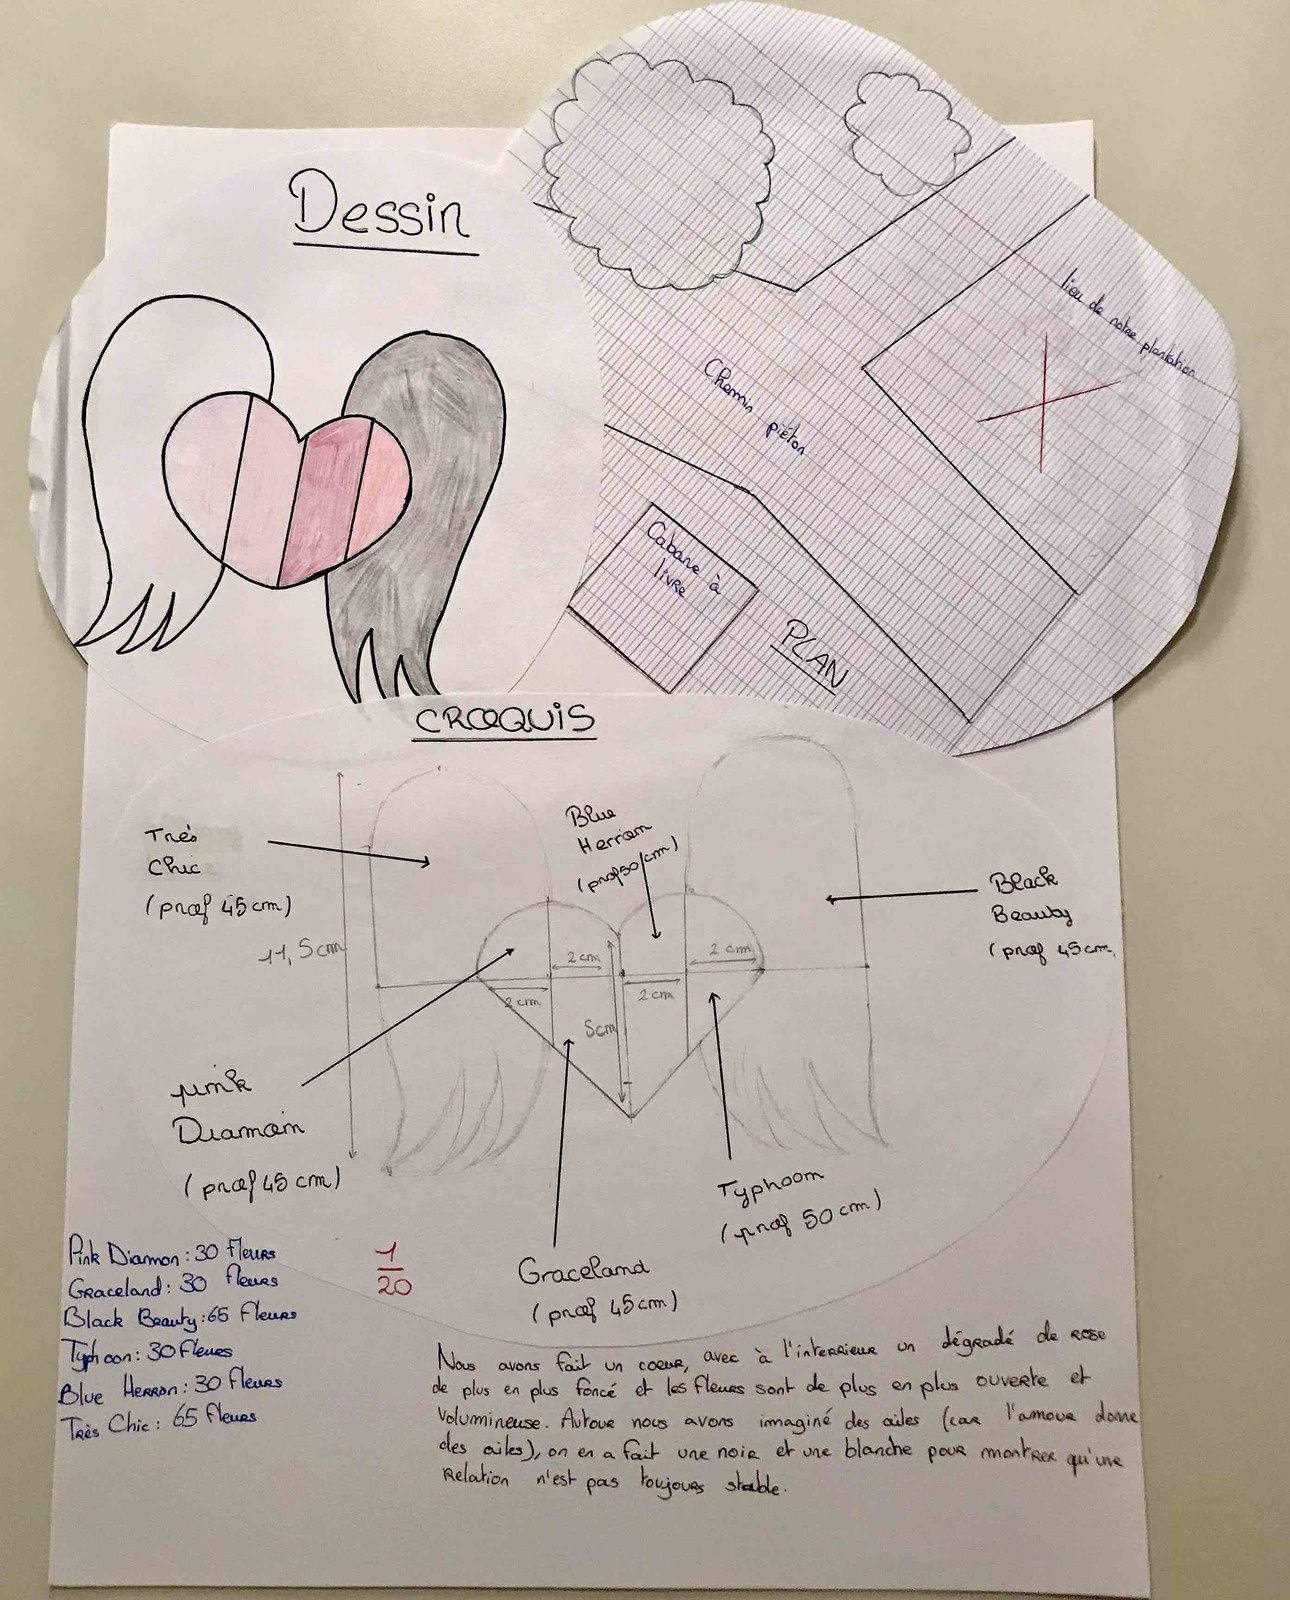 Dessin
lieu de notre plantation
Chemin piéton
Cabane à
livre
PLAN
CROQUIS
Très
Chic
(prof 45cm)
11,5cm
Blue
Herron
(prof 50 cm)
Black
Beauty
(prof 45cm,
2 cm
2 cm
2 cm
2 cm
5cm
pink
Diamain
(prof 45 cm)
Typhoon
(prof 50 cm)
Graceland
(prof 45cm)
Pink Diamon : 30 fleurs
Graceland : 30 fleurs
Black Beauty : 65 fleurs
Typhoon : 30 fleurs
Blue Herron : 30 fleurs
Très Chic : 65 fleurs
1
20
Nous avons fait un coeur, avec à l'interrieur un dégradé de rose
de plus en plus foncé et les fleurs sont de plus en plus ouverte et
volumineuse. Autour nous avons imaginé des ailes (car l'amour donne
des ailes), on en a fait une noir et une blanche pour montrer qu'une
relation n'est pas toujours stable.